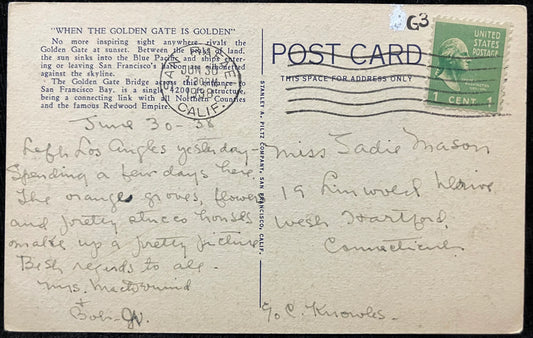 "WHEN THE GOLDEN GATE IS GOLDEN"
No more inspiring sight anywhere rivals the
Golden Gate at sunset. Between the of land,
the sun sinks into the Blue Pacific and ships enter-
ing or leaving San Francisco's harbor are silhouetted
against the skyline.
The Golden Gate Bridge across this entrance to
San Francisco Bay, is a single 4200 structure,
being a connecting link with all Northern Counties
and the famous Redwood Empire.
JUN 30
CALIF.
POST CARD
THIS SPACE FOR ADDRESS ONLY
G3
UNITED
STATES
POSTAGE
1 CENT 1
STANLEY A. PILTZ COMPANY, SAN FRANCISCO, CALIF.
June 30-38
Left Los Angles yesterday-
Spending a few days here.
The orange groves, flowers
and pretty stucco houses
make up a pretty picture
Best regards to all.
Mrs.
+
Bob-
Miss Sadie Mason
19 Linwood Drive
West Hartford
Connecticut
c/o C. Knowles.